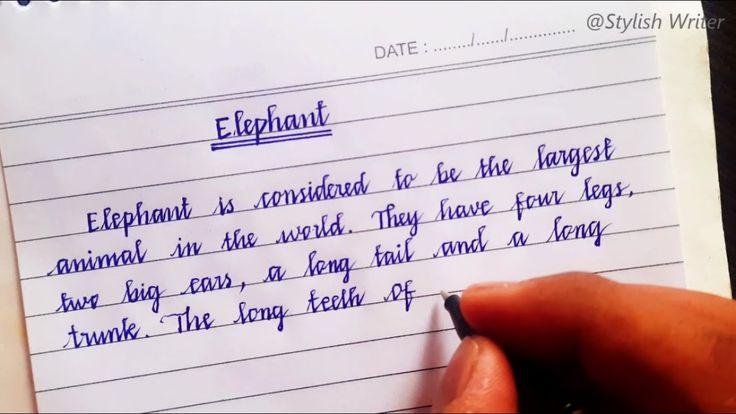 @Stylish Writer
DATE : ......../....../..............
Elephant
Elephant is considered to be the largest
animal in the world. They have four legs,
two big ears, a long tail and a long
trunk. The long teeth of